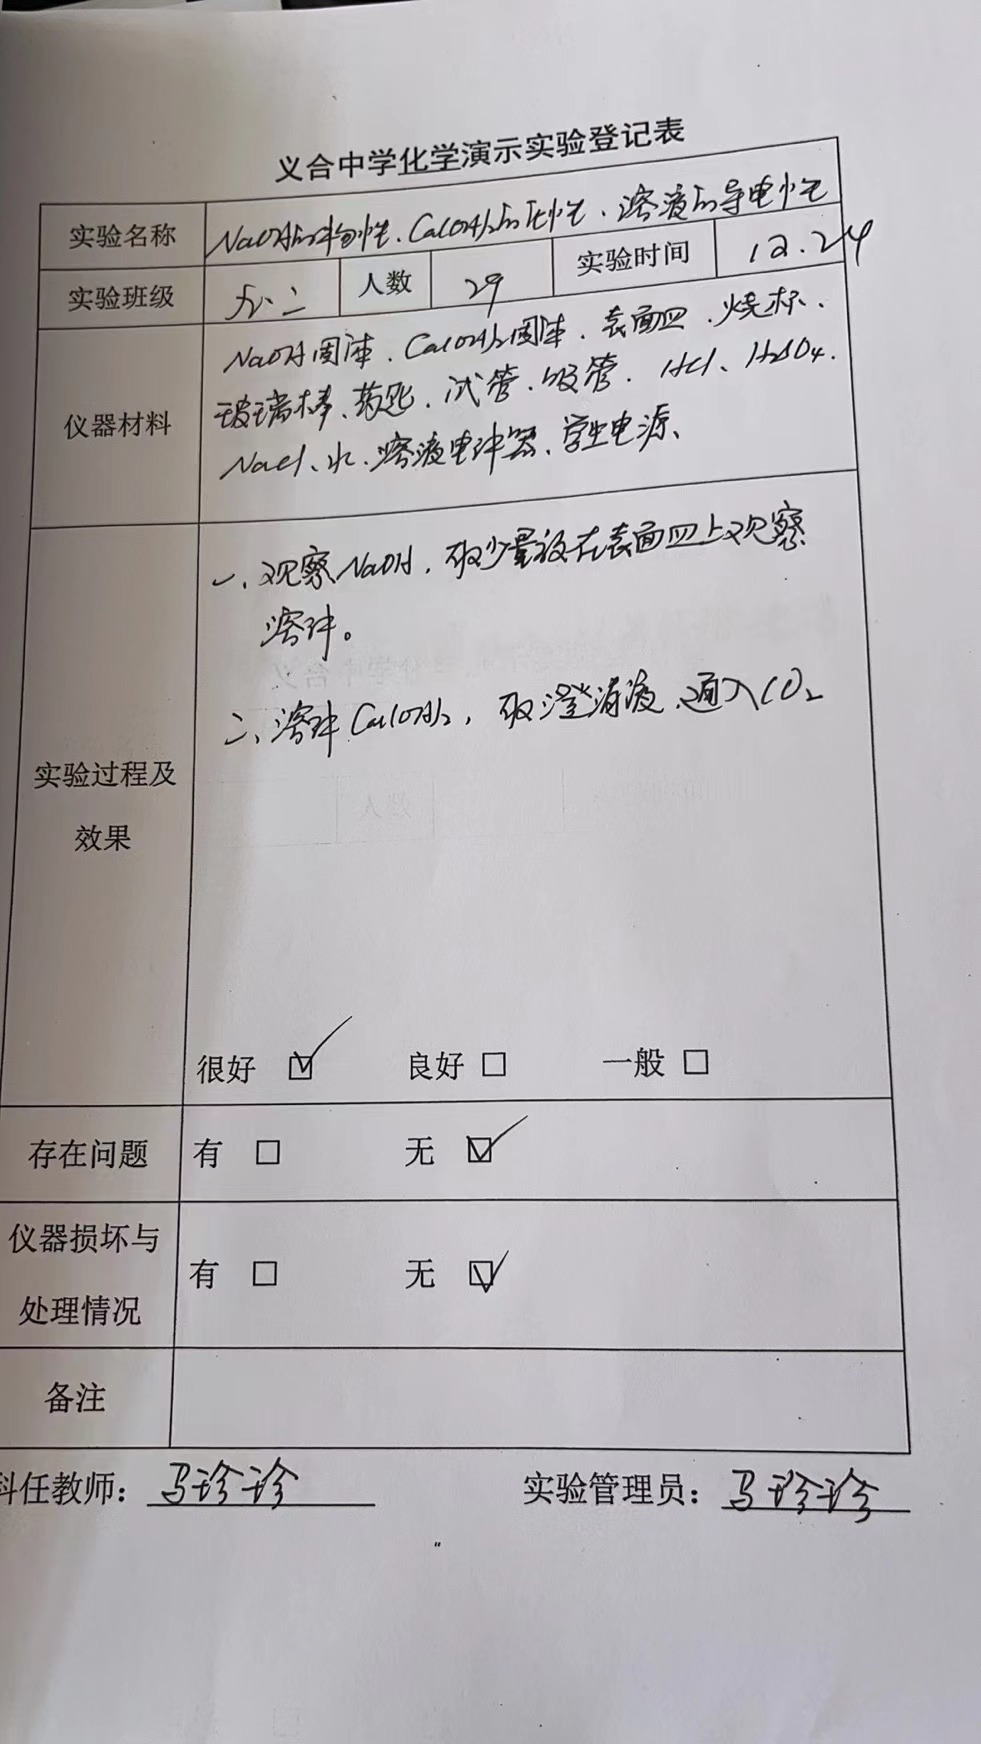 义合中学化学演示实验登记表
实验名称 NaOH的物性、Ca(OH)₂的化性、溶液的导电性
实验班级 九.二 人数 29 实验时间 12.24
仪器材料 NaOH固体、Ca(OH)₂固体、表面皿、烧杯、
玻璃棒、药匙、试管、吸管、HCl、H₂SO₄、
NaCl、水、溶液电 器、学生电源、
一、观察NaOH，取少量放在表面皿上观察
溶 。
二、溶 Ca(OH)₂，取澄清液、通入CO₂
实验过程及
效果
很好 ☑ 良好 □ 一般 □
存在问题 有 □ 无 ☑
仪器损坏与
处理情况 有 □ 无 ☑
备注
科任教师：马珍珍 实验管理员：马珍珍